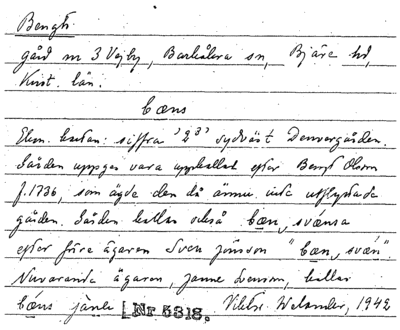 Bengts
gård nr 3 Vejby, Barkåkra sn, Bjäre hd,
Krist. län.
bæns
Ekon. kartan: siffra '23' sydväst Denvergården.
Gården uppges vara uppkallad efter Bengt Olsson
f. 1736, som ägde den då ännu inte utflyttade
gården. Gården kallas också bæn svænsa
efter förre ägaren Sven Jönsson "bæn svæn".
Nuvarande ägaren, Janne Svensson, kallas
bæns jänne [Nr 5318. Viktor Welander, 1942